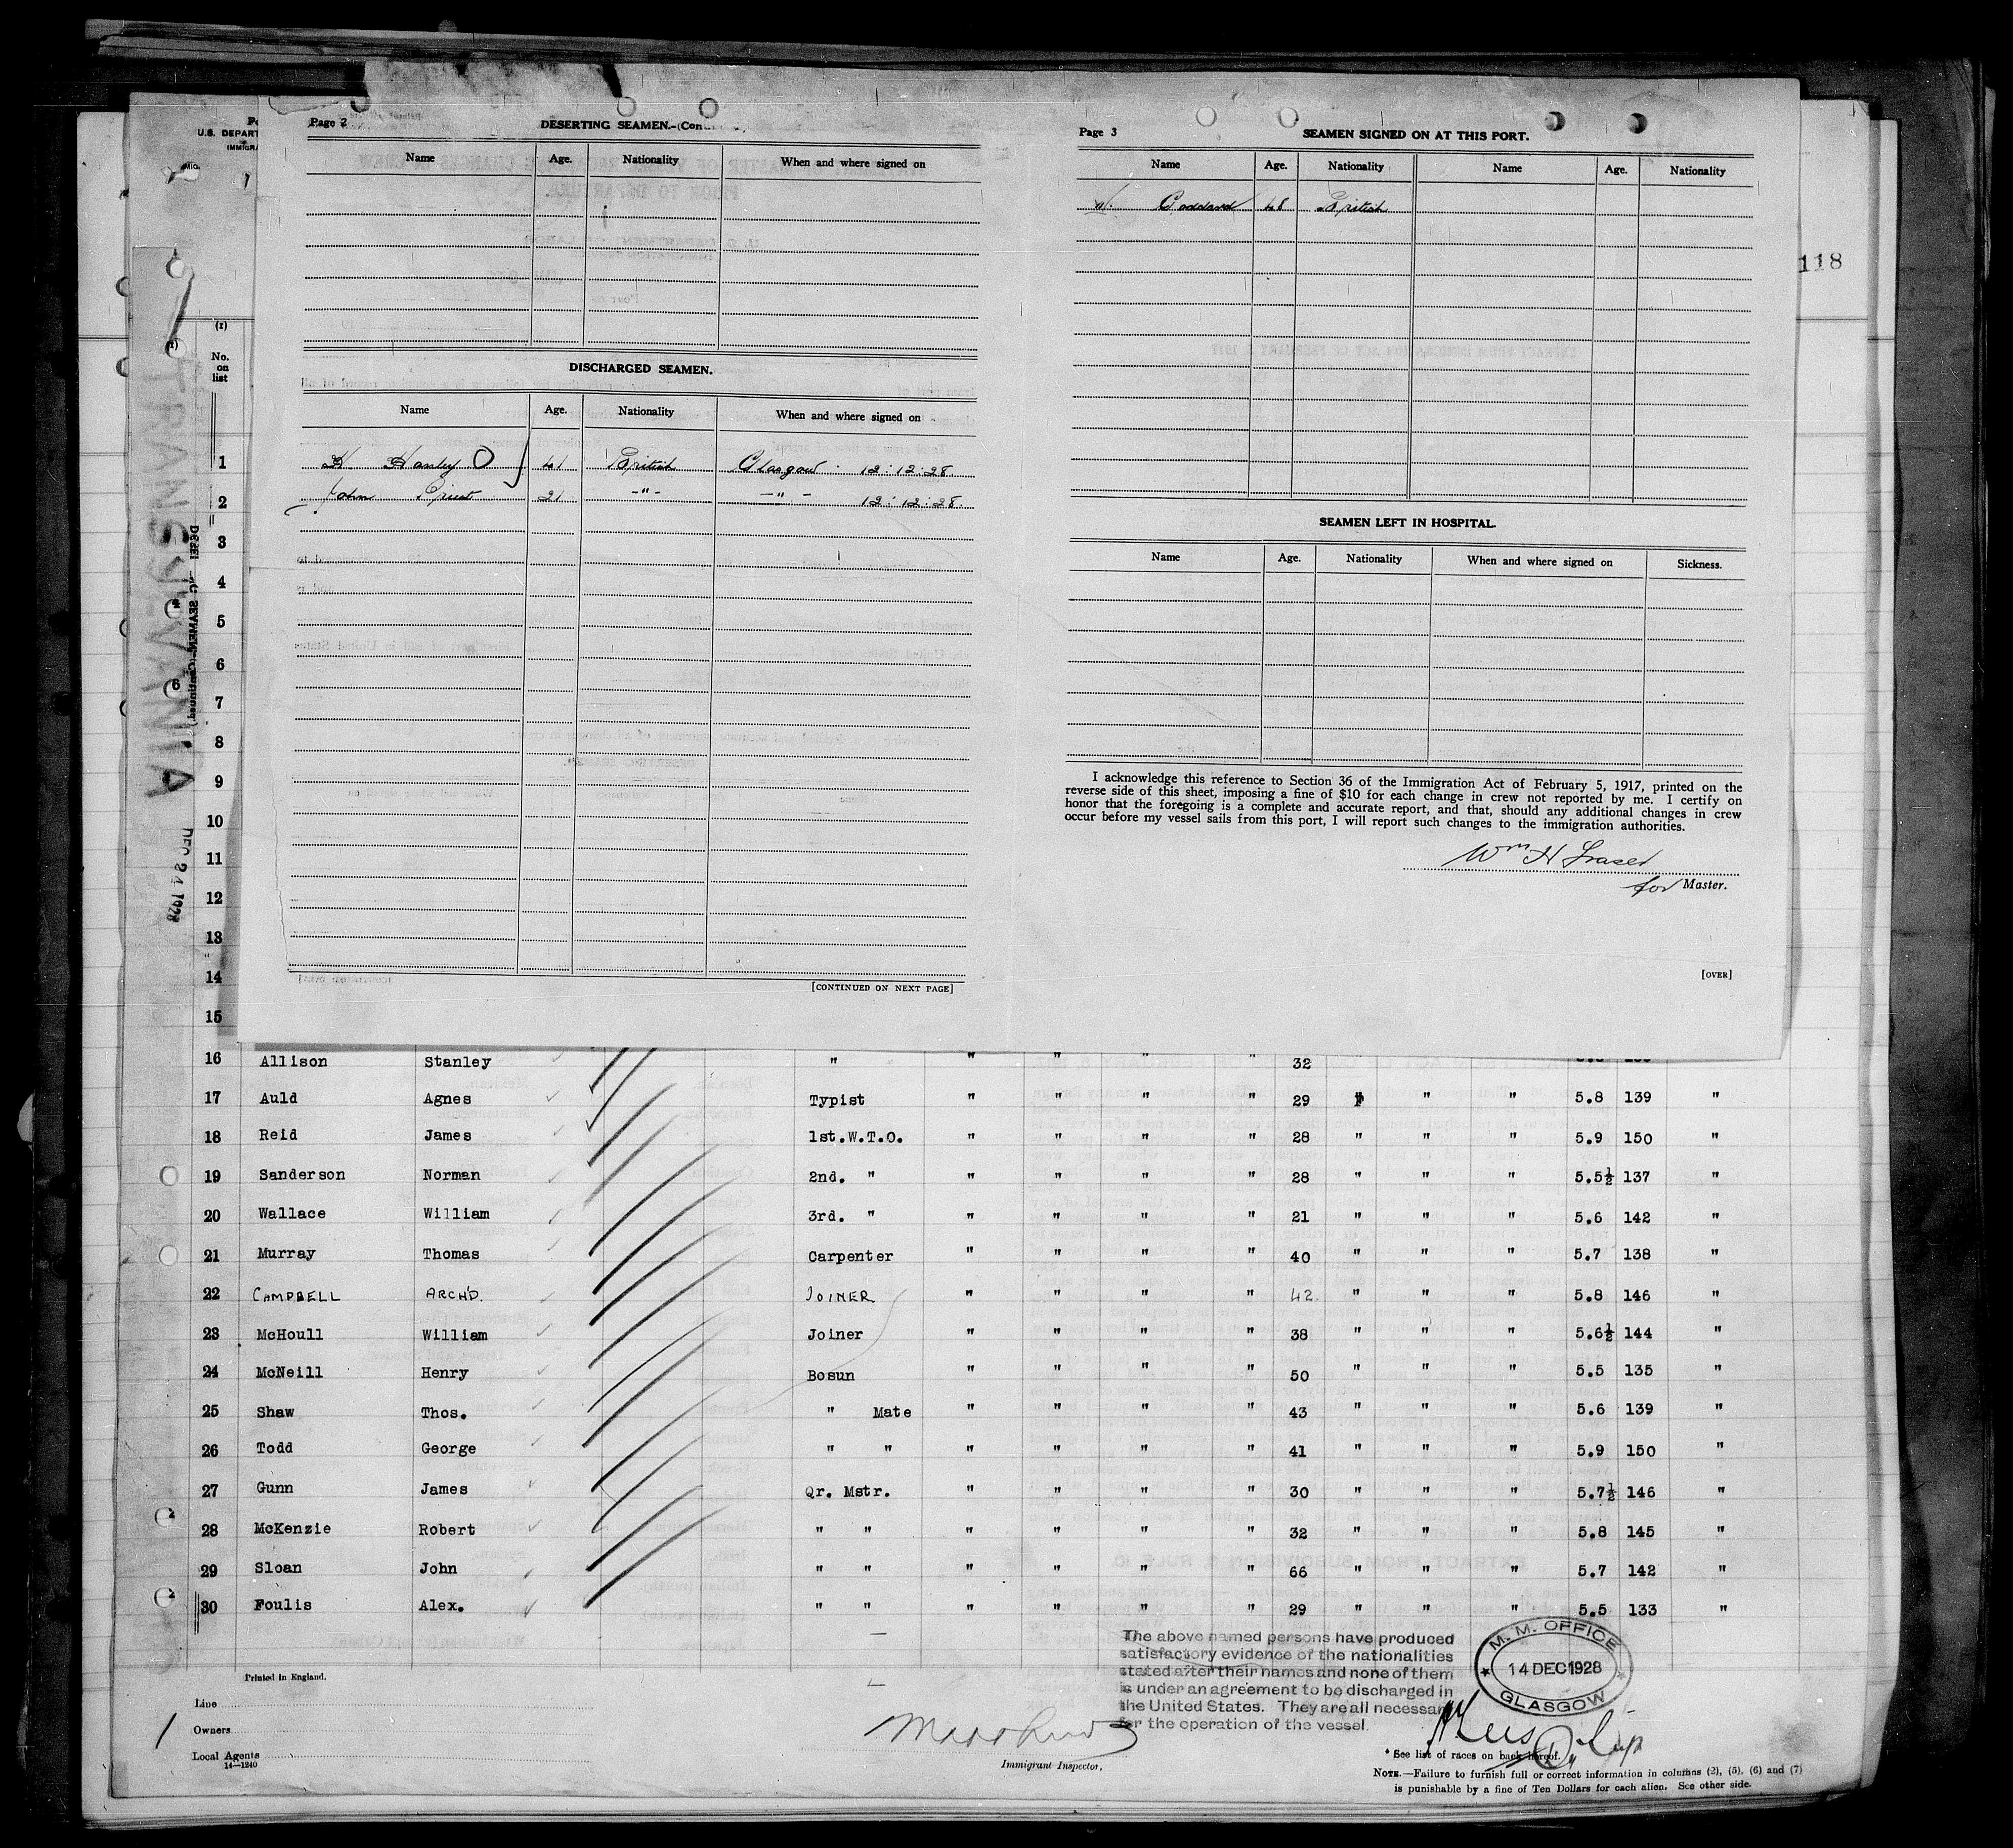 Page 2
DESERTING SEAMEN.-(Con
Name Age. Nationality When and where signed on
DISCHARGED SEAMEN.
Name Age. Nationality When and where signed on
H Hanley 41 British Glasgow 12:12:28
John Priest 21 -"- -"- 12:12:28.
[CONTINUED ON NEXT PAGE]
Page 3
SEAMEN SIGNED ON AT THIS PORT.
Name Age. Nationality Name Age. Nationality
W. Goddard 48 British
SEAMEN LEFT IN HOSPITAL.
Name Age. Nationality When and where signed on Sickness.
I acknowledge this reference to Section 36 of the Immigration Act of February 5, 1917, printed on the
reverse side of this sheet, imposing a fine of $10 for each change in crew not reported by me. I certify on
honor that the foregoing is a complete and accurate report, and that, should any additional changes in crew
occur before my vessel sails from this port, I will report such changes to the immigration authorities.
Wm H Fraser
for Master.
[OVER]
118
U.S. DEPART
IMMIGRA
(1)
No.
on
list
TRANSYLVANIA
DEC 24 1928
1
2
3
4
5
6
7
8
9
10
11
12
13
14
15
16 Allison Stanley " " " " " 32
17 Auld Agnes Typist " " " " 29 " " 5.8 139 "
18 Reid James 1st.W.T.O. " " " " 28 " " " 5.9 150 "
19 Sanderson Norman 2nd. " " " " " 28 " " " 5.5½ 137 "
20 Wallace William 3rd. " " " " " 21 " " " 5.6 142 "
21 Murray Thomas Carpenter " " " " 40 " " " 5.7 138 "
22 CAMPBELL ARCH'D. JOINER " " " " 42. " " " 5.8 146 "
23 McHoull William Joiner " " " " 38 " " " 5.6½ 144 "
24 McNeill Henry Bosun " " " " 50 " " " 5.5 135 "
25 Shaw Thos. " Mate " " " " 43 " " " 5.6 139 "
26 Todd George " " " " " " 41 " " " 5.9 150 "
27 Gunn James Qr. Mstr. " " " " 30 " " " 5.7½ 146 "
28 McKenzie Robert " " " " " " 32 " " " 5.8 145 "
29 Sloan John " " " " " " 66 " " " 5.7 142 "
30 Foulis Alex. " " " " " " 29 " " " 5.5 133 "
The above named persons have produced
satisfactory evidence of the nationalities
stated after their names and none of them
is under an agreement to be discharged in
the United States. They are all necessary
for the operation of the vessel.
M. M. OFFICE
14 DEC 1928
GLASGOW
Printed in England.
Line
Owners
Local Agents
14—1240
Immigrant Inspector.
* See list of races on back hereof.
NOTE.—Failure to furnish full or correct information in columns (2), (5), (6) and (7)
is punishable by a fine of Ten Dollars for each alien. See other side.